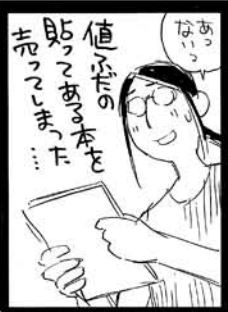 あっ
ないっ
値ふだの
貼ってある本を
売ってしまった
…